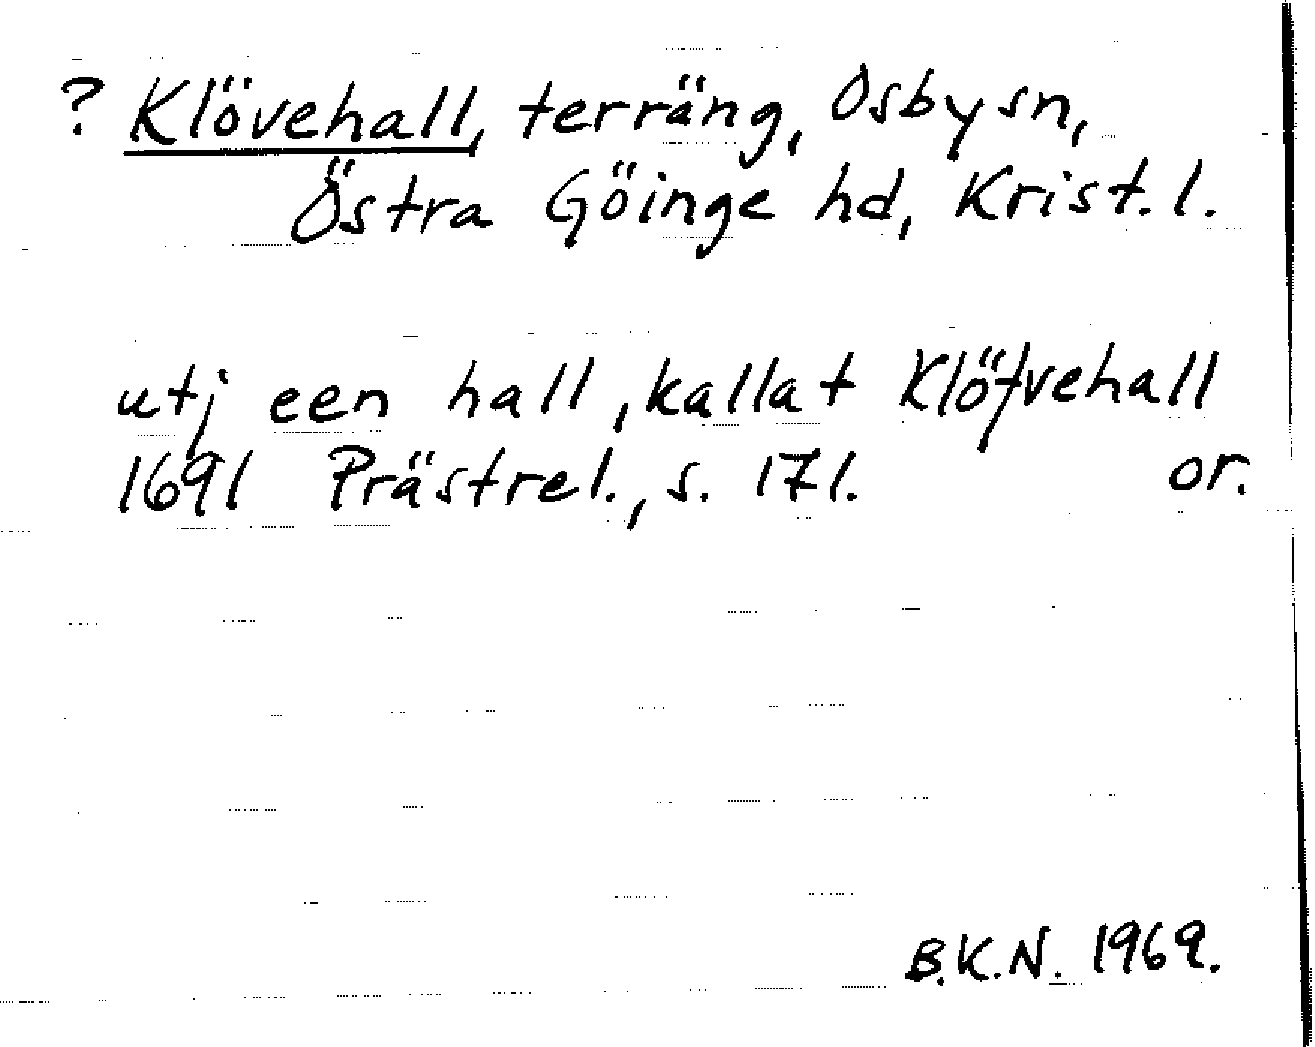 ? Klövehall, terräng, Osby sn,
Östra Göinge hd, Krist. l.
utj een hall, kallat Klöfvehall
1691 Prästrel., s. 171. or.
B.K.N. 1969.